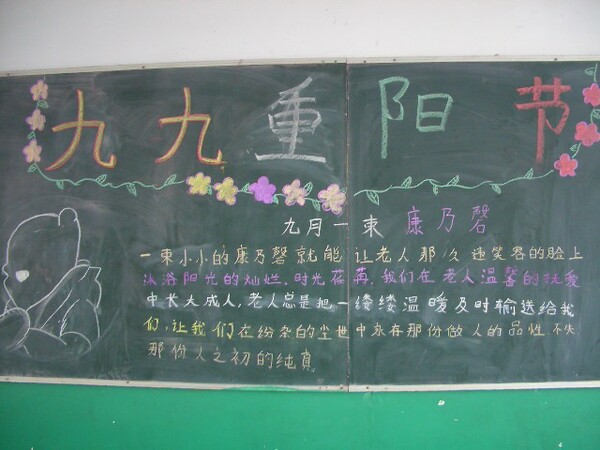 九九重阳节
九月一束 康乃磬
一束小小的康乃磬就能让老人那久违笑容的脸上
沐浴阳光的灿烂.时光荏苒.我们在老人温馨的抚爱
中长大成人,老人总是把一缕缕温暖及时输送给我
们,让我们在纷杂的尘世中永存那份做人的品性.不失
那份人之初的纯真